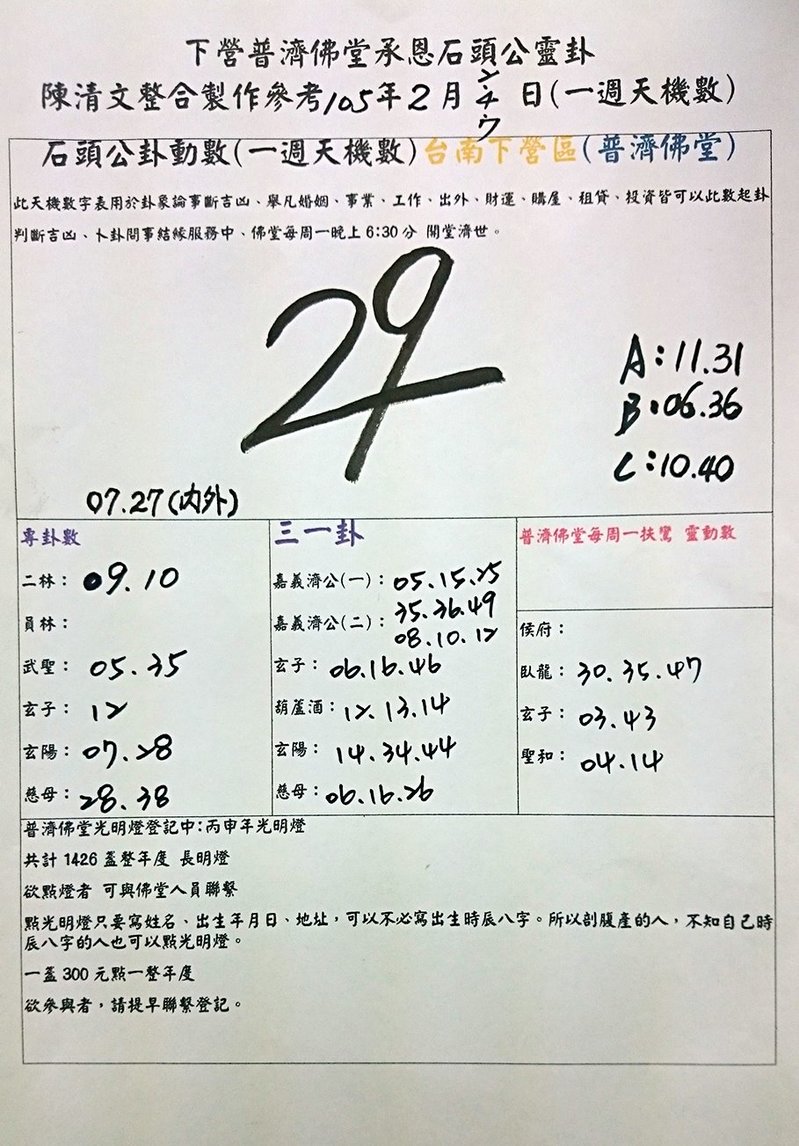 下營普濟佛堂承恩石頭公靈卦
陳清文整合製作參考105年2月 日(一週天機數)
石頭公卦動數(一週天機數)台南下營區(普濟佛堂)
此天機數字表用於卦象論事斷吉凶、舉凡婚姻、事業、工作、出外、財運、購屋、租貸、投資皆可以此數起卦
判斷吉凶、卜卦問事結緣服務中、佛堂每周一晚上6:30分 開堂濟世。
29
A:11.31
B:06.36
C:10.40
07.27(內外)
專卦數
二林:09.10
員林:
武聖:05.35
玄子:12
玄陽:07.28
慈母:28.38
三一卦
嘉義濟公(一):05.15.25
35.36.49
嘉義濟公(二):08.10.12
玄子:06.16.46
葫蘆酒:12.13.14
玄陽:14.34.44
慈母:06.16.26
普濟佛堂每周一扶鸞 靈動數
侯府:
臥龍:30.35.47
玄子:03.43
聖和:04.14
普濟佛堂光明燈登記中:丙申年光明燈
共計1426盞整年度 長明燈
欲點燈者 可與佛堂人員聯繫
點光明燈只要寫姓名、出生年月日、地址,可以不必寫出生時辰八字。所以剖腹產的人,不知自己時
辰八字的人也可以點光明燈。
一盞300元點一整年度
欲參與者,請提早聯繫登記。